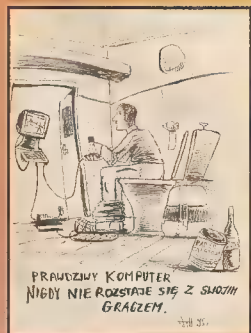 PRAWDZIWY KOMPUTER
NIGDY NIE ROZSTAJE SIĘ Z SWOIM
GRACZEM.